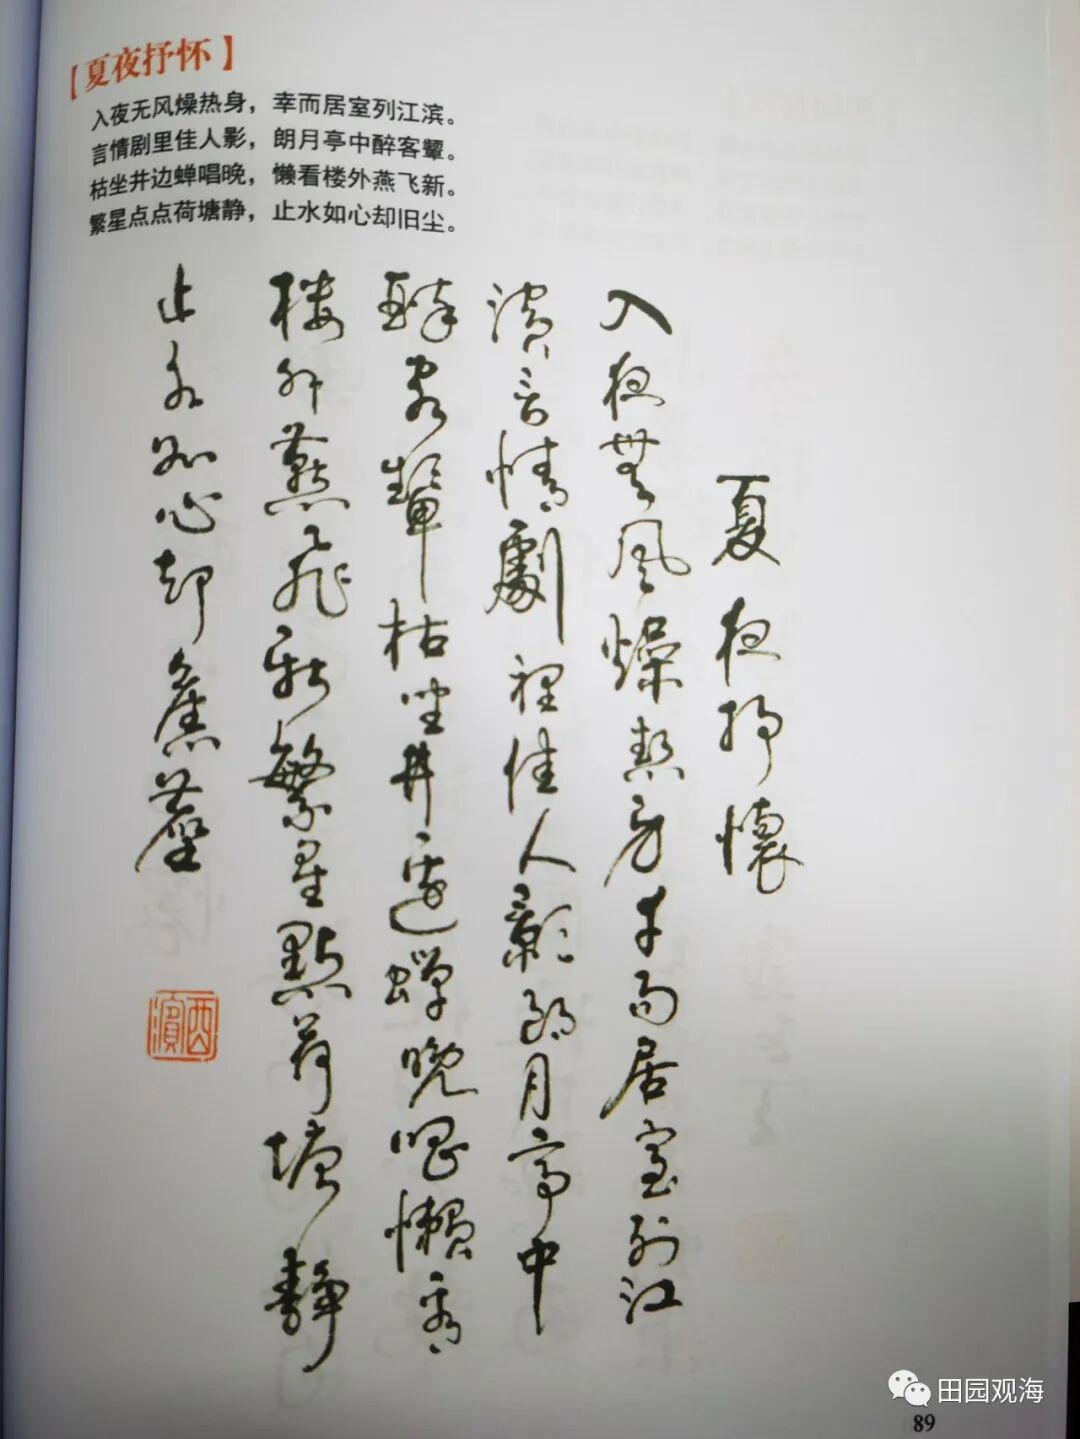 【夏夜抒怀】
入夜无风燥热身，幸而居室列江滨。
言情剧里佳人影，朗月亭中醉客颦。
枯坐井边蝉唱晚，懒看楼外燕飞新。
繁星点点荷塘静，止水如心却旧尘。
夏夜抒懷
入夜無風燥熱身幸而居室列江
濱言情劇裡佳人影朗月亭中
醉客顰枯坐井邊蟬晚唱懶看
樓外燕飛新繁星點荷塘靜
止水如心却舊塵
西濱
田园观海
89